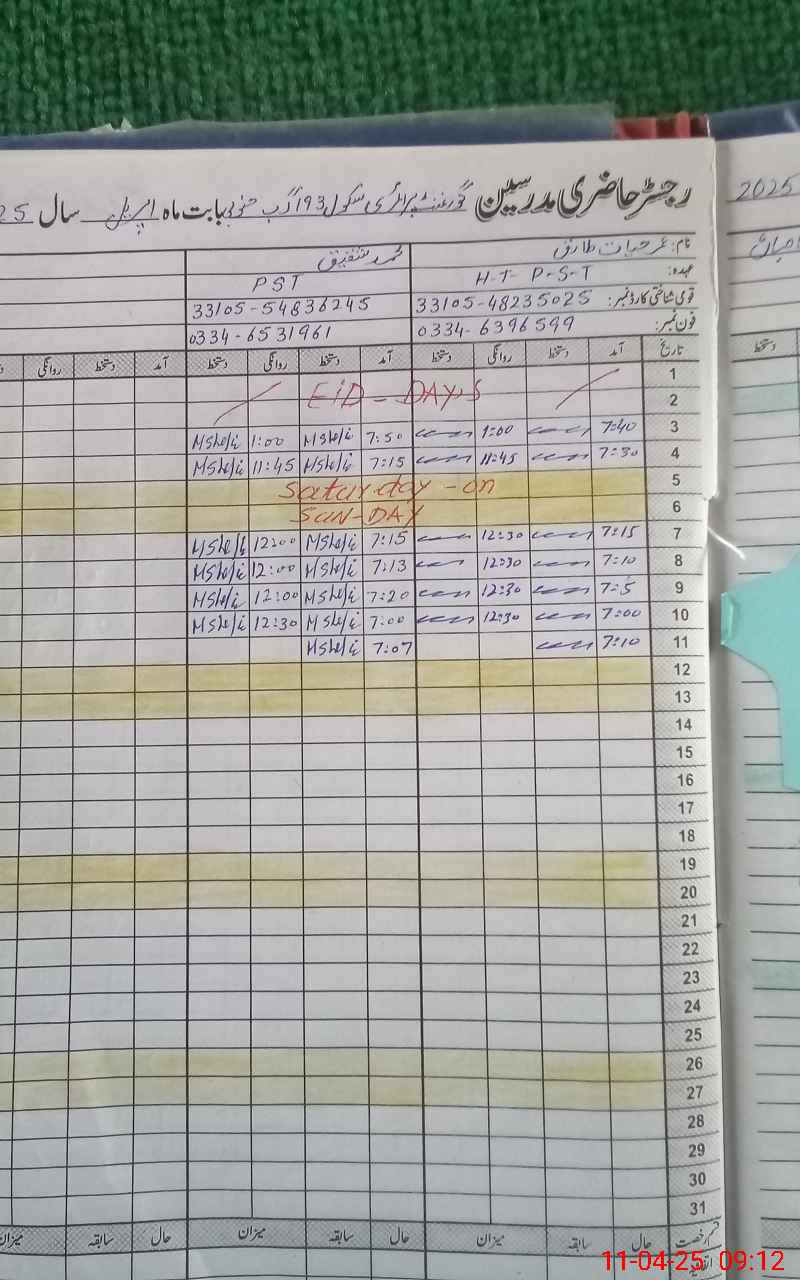 رجسٹر حاضری مدرسین گورنمنٹ پرائمری سکول 193 گ ب جنوبی بابت ماہ اپریل سال 25
2025
نام: عمر حیات طارق محمد شفیق
عہدہ: H-T- P-S-T PST
قومی شناختی کارڈ نمبر: 33105-48235025 33105-54836245
فون نمبر: 0334-6396599 0334-6531961
تاریخ آمد دستخط روانگی دستخط آمد دستخط روانگی دستخط آمد دستخط روانگی
دستخط
1
2 EiD - DAYS
3 7:40 1:00 7:50 1:00
4 7:30 11:45 7:15 11:45
5 Saturday - on
6 SUN-DAY
7 7:15 12:30 7:15 12:00
8 7:10 12:30 7:13 12:00
9 7:5 12:30 7:20 12:00
10 7:00 12:30 7:00 12:30
11 7:10 7:07
12
13
14
15
16
17
18
19
20
21
22
23
24
25
26
27
28
29
30
31
حال سابقہ میزان حال سابقہ میزان حال سابقہ میزان
11-04-25 09:12